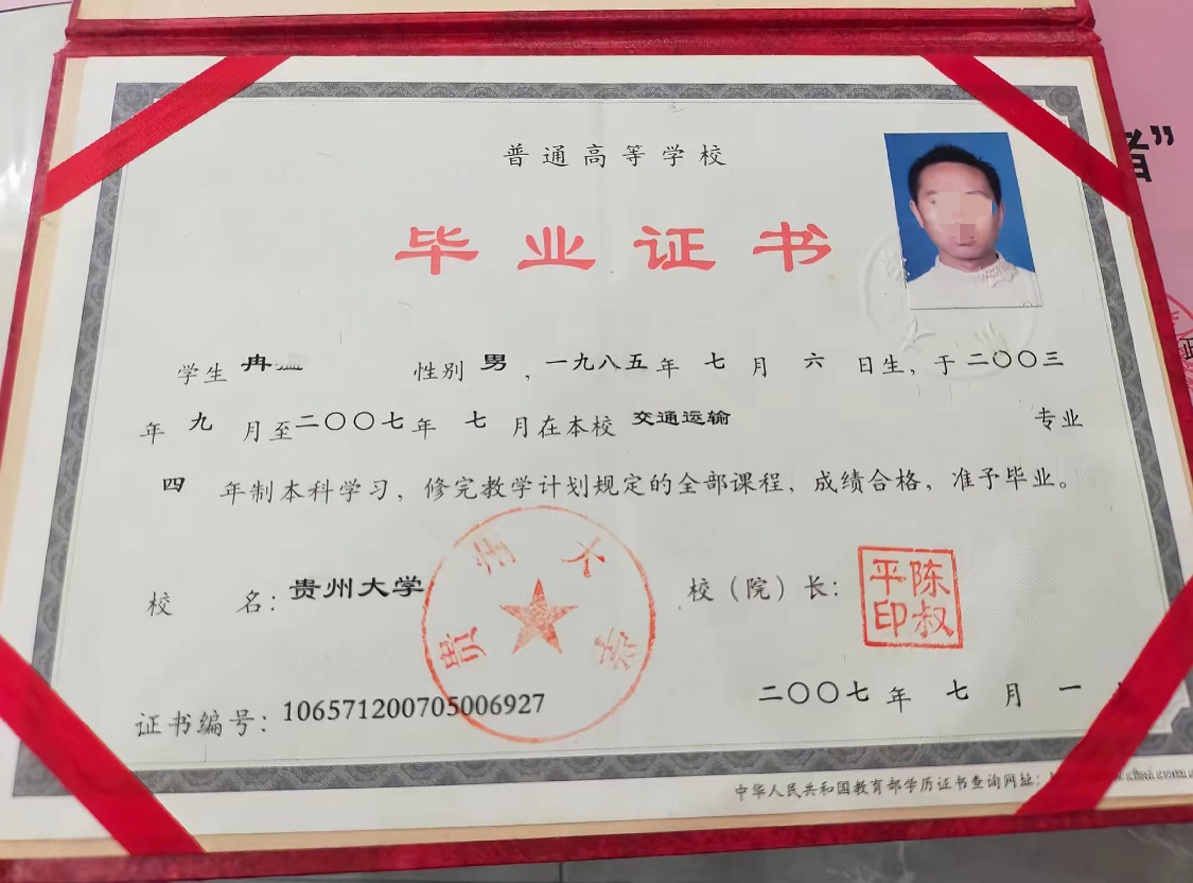 普通高等学校
毕业证书
学生 冉 性别 男，一九八五年 七 月 六 日生，于二〇〇三
年 九 月至二〇〇七年 七 月在本校 交通运输 专业
四 年制本科学习，修完教学计划规定的全部课程，成绩合格，准予毕业。
校 名：贵州大学
贵州大学
校（院）长：
陈叔平印
证书编号：106571200705006927
二〇〇七 年 七 月 一
中华人民共和国教育部学历证书查询网址：
者”